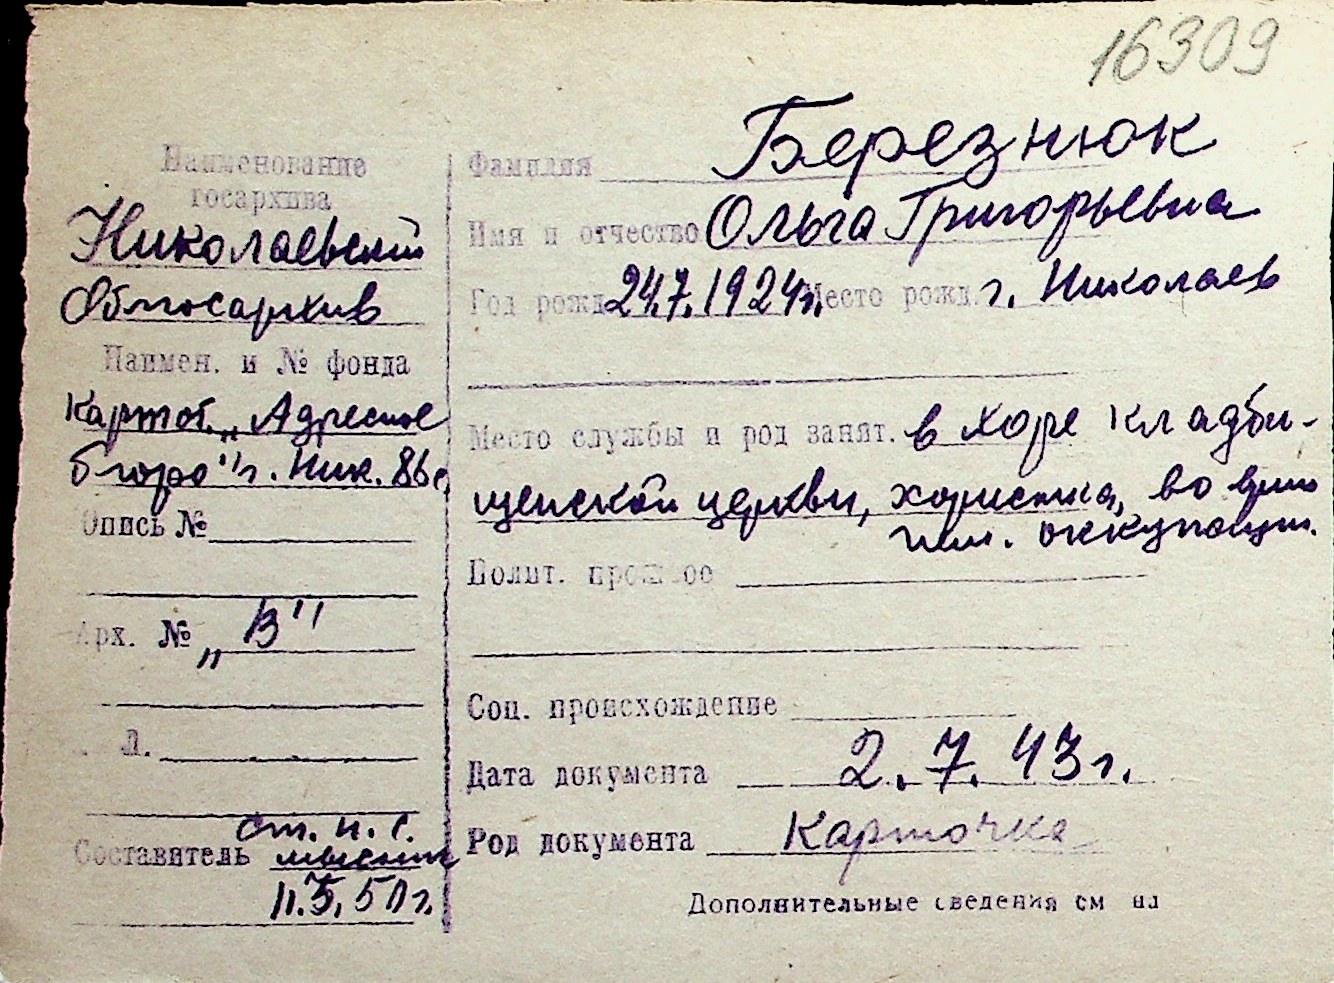 16309
Наименование
госархива
Николаевский
Облгосархив
Наимен. и № фонда
Картот. "Адресное
бюро" г. Ник. 86 с.
Опись №
Арх. № "В"
Л.
Составитель ст. н. с.
11.5.50 г.
Фамилия Березнюк
Имя и отчество Ольга Григорьевна
Год рожд. 24.7.1924 г. Место рожд. г. Николаев
Место службы и род занят. в хоре кладби-
щенской церкви, хористка, во врем.
нем. оккупации.
Полит. прошлое
Соц. происхождение
Дата документа 2.7.43 г.
Род документа Карточка
Дополнительные сведения см на